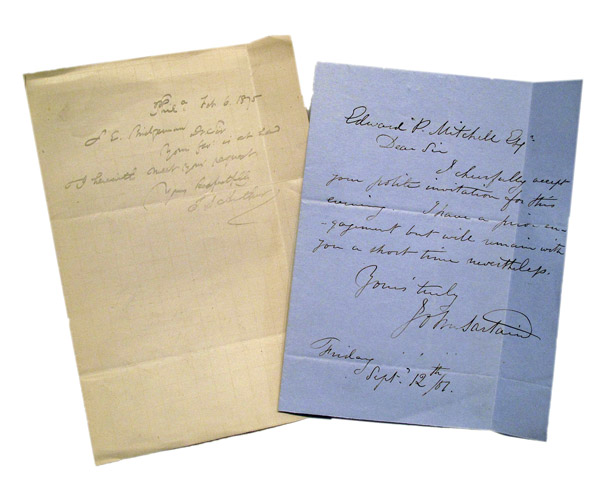 Phila Feb 6 1875
J E. Dear Sir
Your fav is at hand
& I herewith your request
Yours Respectfully
Edward P. Mitchell Esqr
Dear Sir
I cheerfully accept
your polite invitation for this
evening. I have a prior en-
gagement but will remain with
you a short time nevertheless.
Yours truly
John Sartain
Friday
Septr 12th /61.